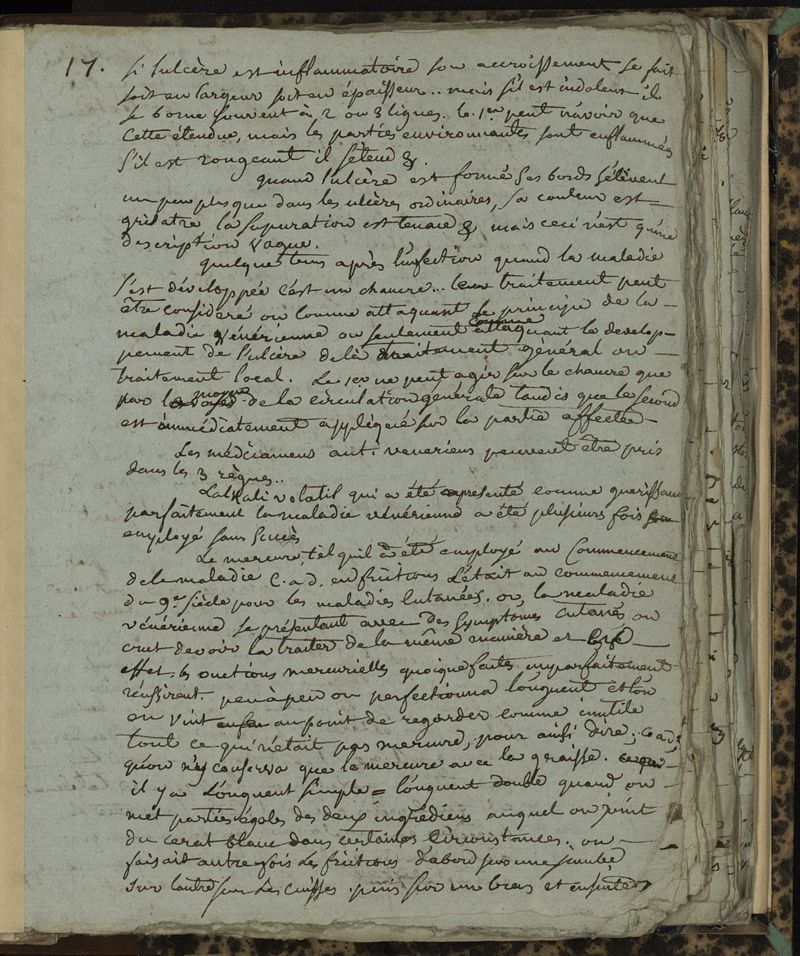 17. si l'ulcère est inflammatoire son accroissement se fait
soit en largeur soit en épaisseur .. mais s'il est indolent il
se borne souvent à 2 ou 3 lignes. le 1er peut n'avoir que
cette étendue, mais les parties environnantes sont enflammées
s'il est rongeant il s'étend &.
quand l'ulcère est formé ses bords s'élèvent
un peu plus que dans les ulcères ordinaires, sa couleur est
grisatre la supuration est tenace & mais ceci n'est qu'une
description vague.
quelque tems après l'infection quand la maladie
s'est développée c'est un chancre... leur traitement peut
être consideré ou comme attaquant le principe de la
maladie vénérienne ou seulement comme attaquant le develop-
pement de l'ulcère delà traitement général ou
traitement local. Le 1er ne peut agir sur le chancre que
par la voye de la circulation générale tandis que le second
est immédiatement appliqué sur la partie affectée
Les médicamens anti-veneriens peuvent être pris
dans les 3 règnes..
L'alkali volatil qui a été presenté comme guerissant
parfaitement la maladie vénérienne a été plusieurs fois
employé sans succès
Le mercure, tel qu'il a été employé au Commencement
de la maladie c. a. d. en frictions l'était au commencement
du 9e siècle pour les maladies cutanées. or, la maladie
vénérienne se présentant avec des symptomes cutanés on
crut devoir la traiter de la même manière et
effet les onctions mercurielles quoique faites imparfaitement
réussirent. peu à peu on perfectionna l'onguent et l'on
en vint enfin au point de regarder comme inutile
tout ce qui n'était pas mercure, pour ainsi dire, c. a. d.
qu'on n'y conserva que le mercure avec la graisse.
il y a l'onguent simple = l'onguent double quand on
met parties égales des deux ingrédiens auquel on joint
du cerat blanc dans certaines circonstances. on
faisait autrefois les frictions d'abord sur une jambe
sur l'autre sur les cuisses. puis sur un bras et ensuite